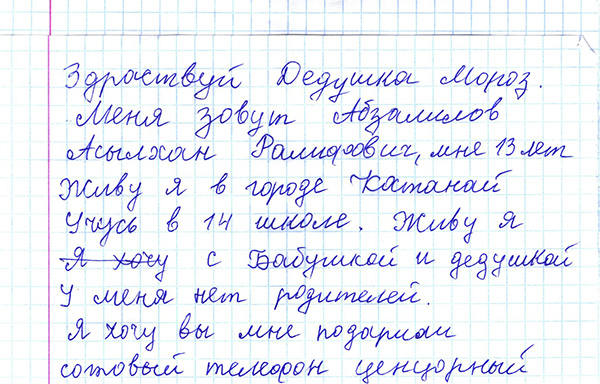 Здраствуй Дедушка Мороз.
Меня зовут Абзалилов
Асылхан Рамифович, мне 13 лет
Живу я в городе Костанай
Учусь в 14 школе. Живу я
Я хочу с Бабушкой и дедушкой
У меня нет родителей.
Я хочу вы мне подарили
сотовый телефон ценцорный